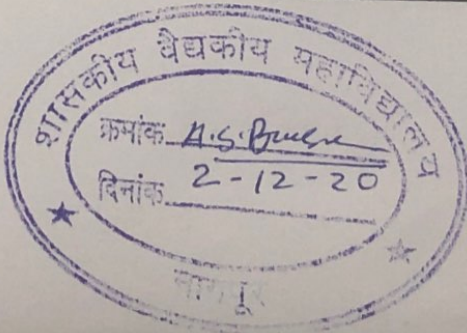 शासकीय वैद्यकीय महाविद्यालय
क्रमांक
दिनांक 2-12-20
नागपूर